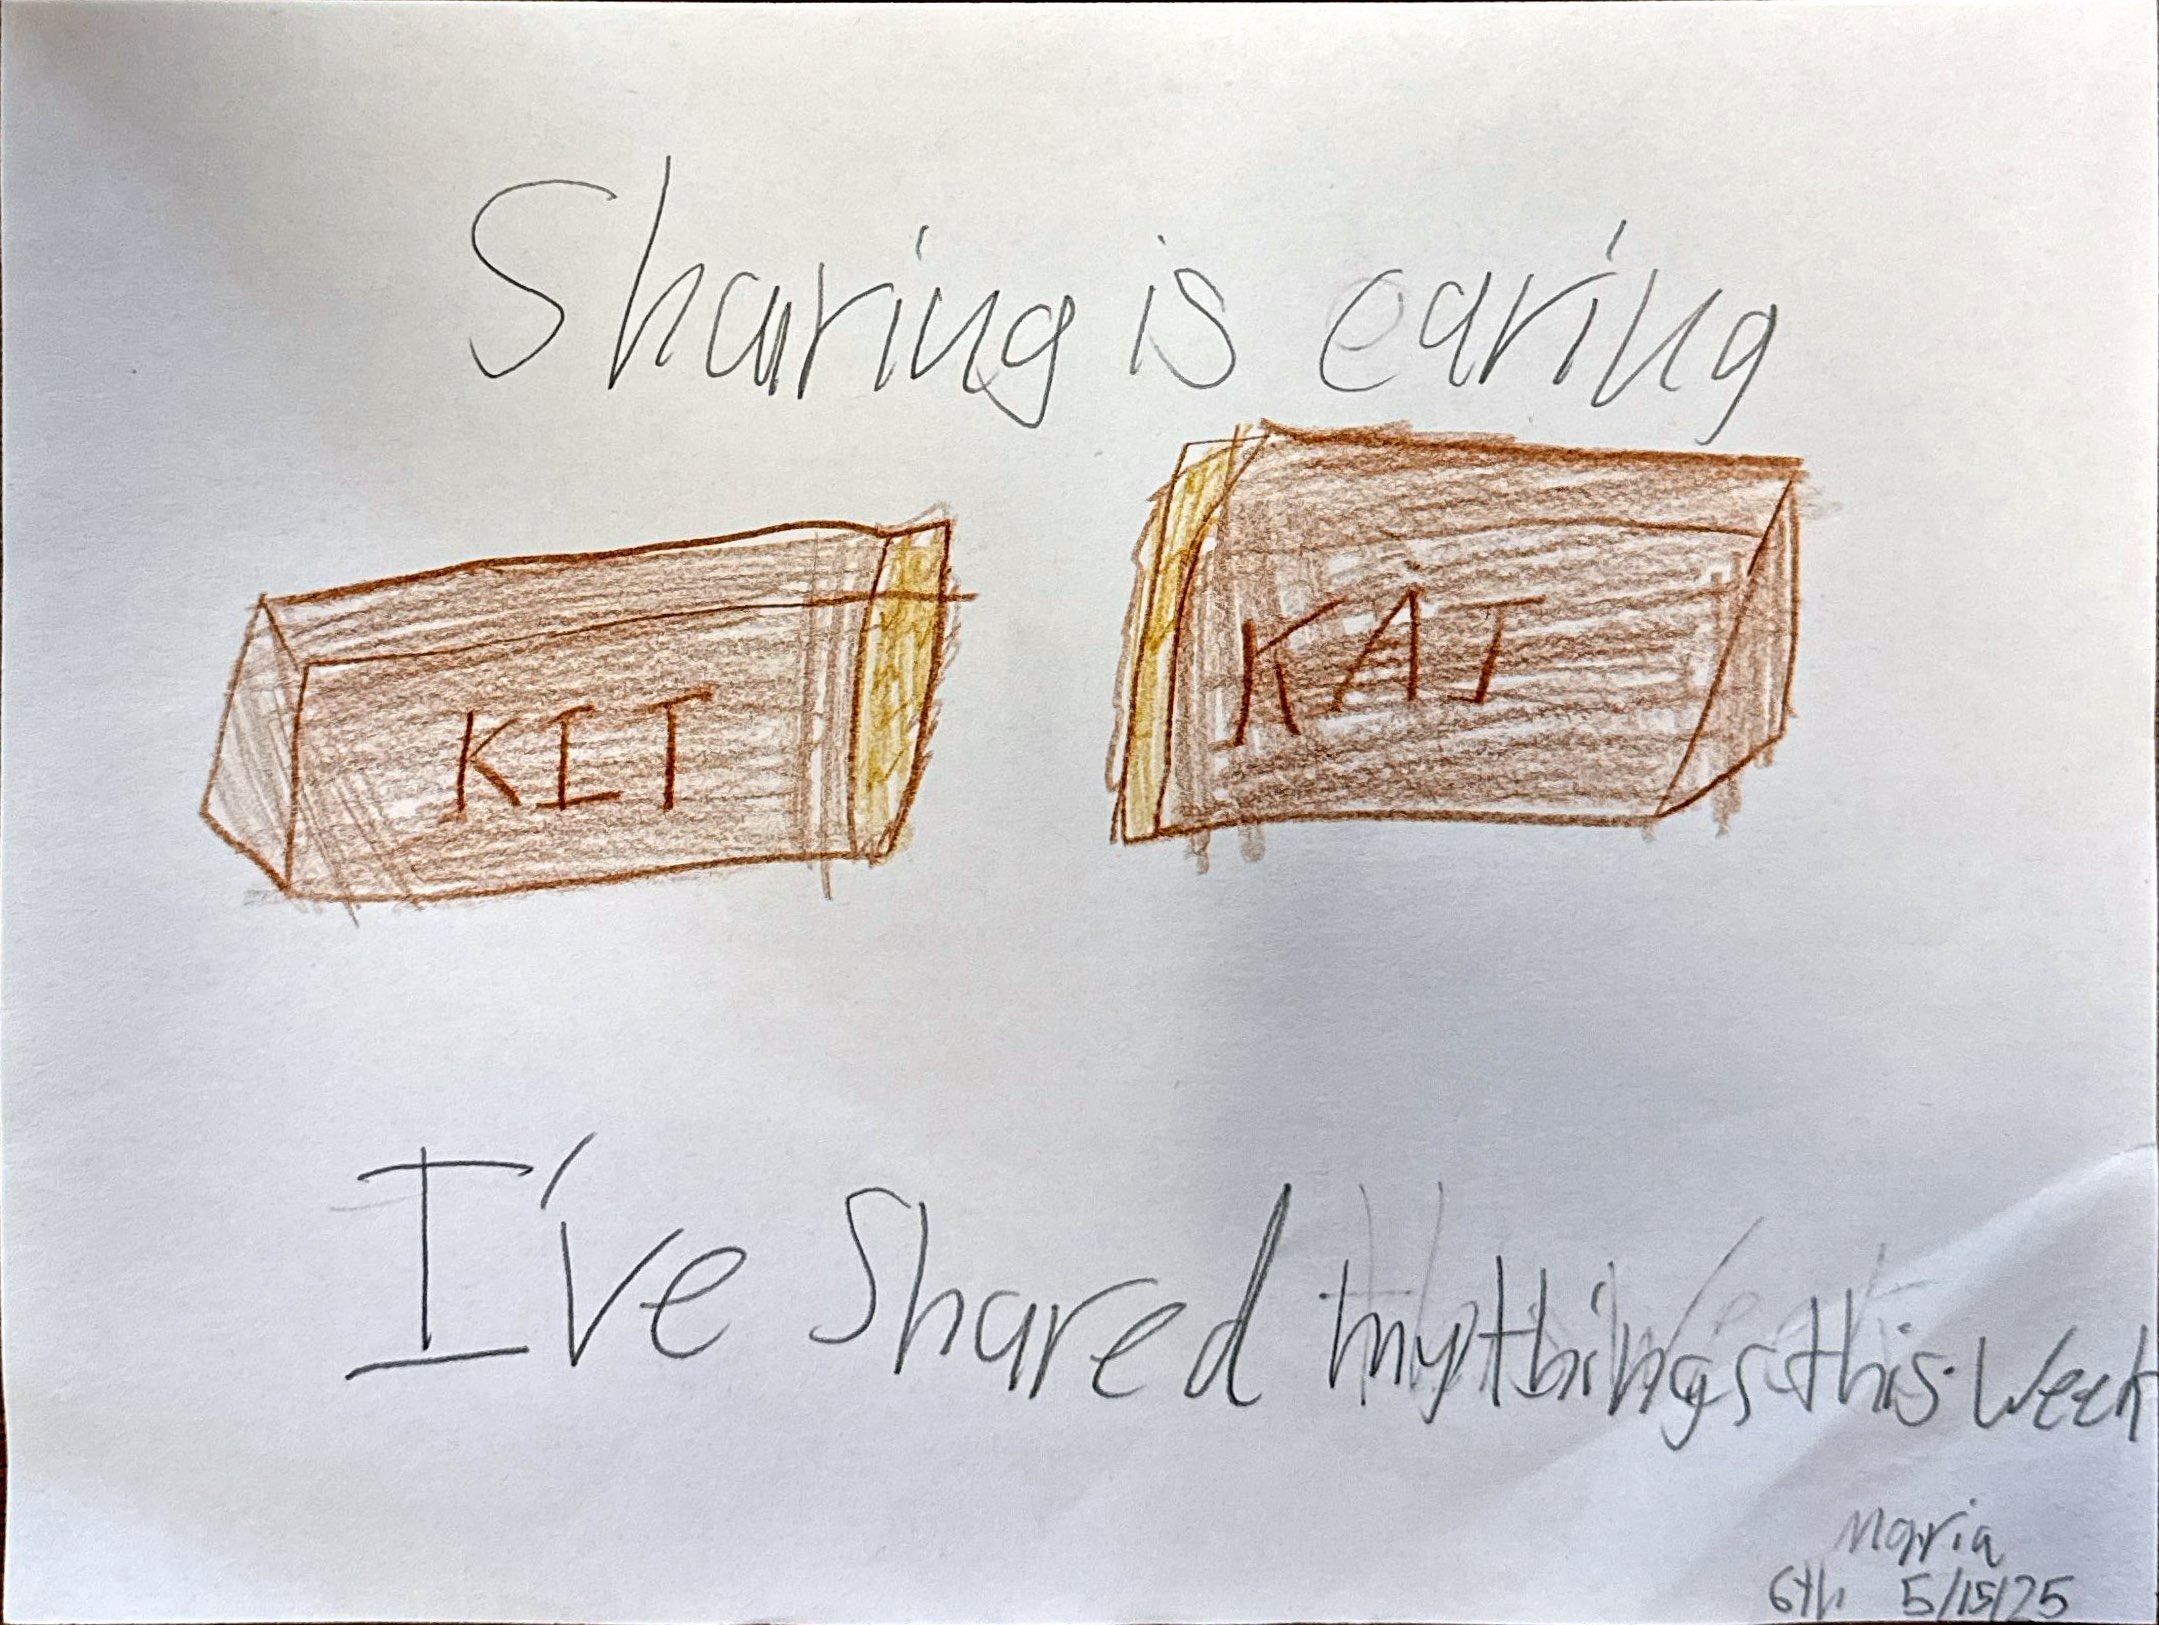 Sharing is caring
KIT KAT
I've Shared my things this week
Maria
6th 5/15/25